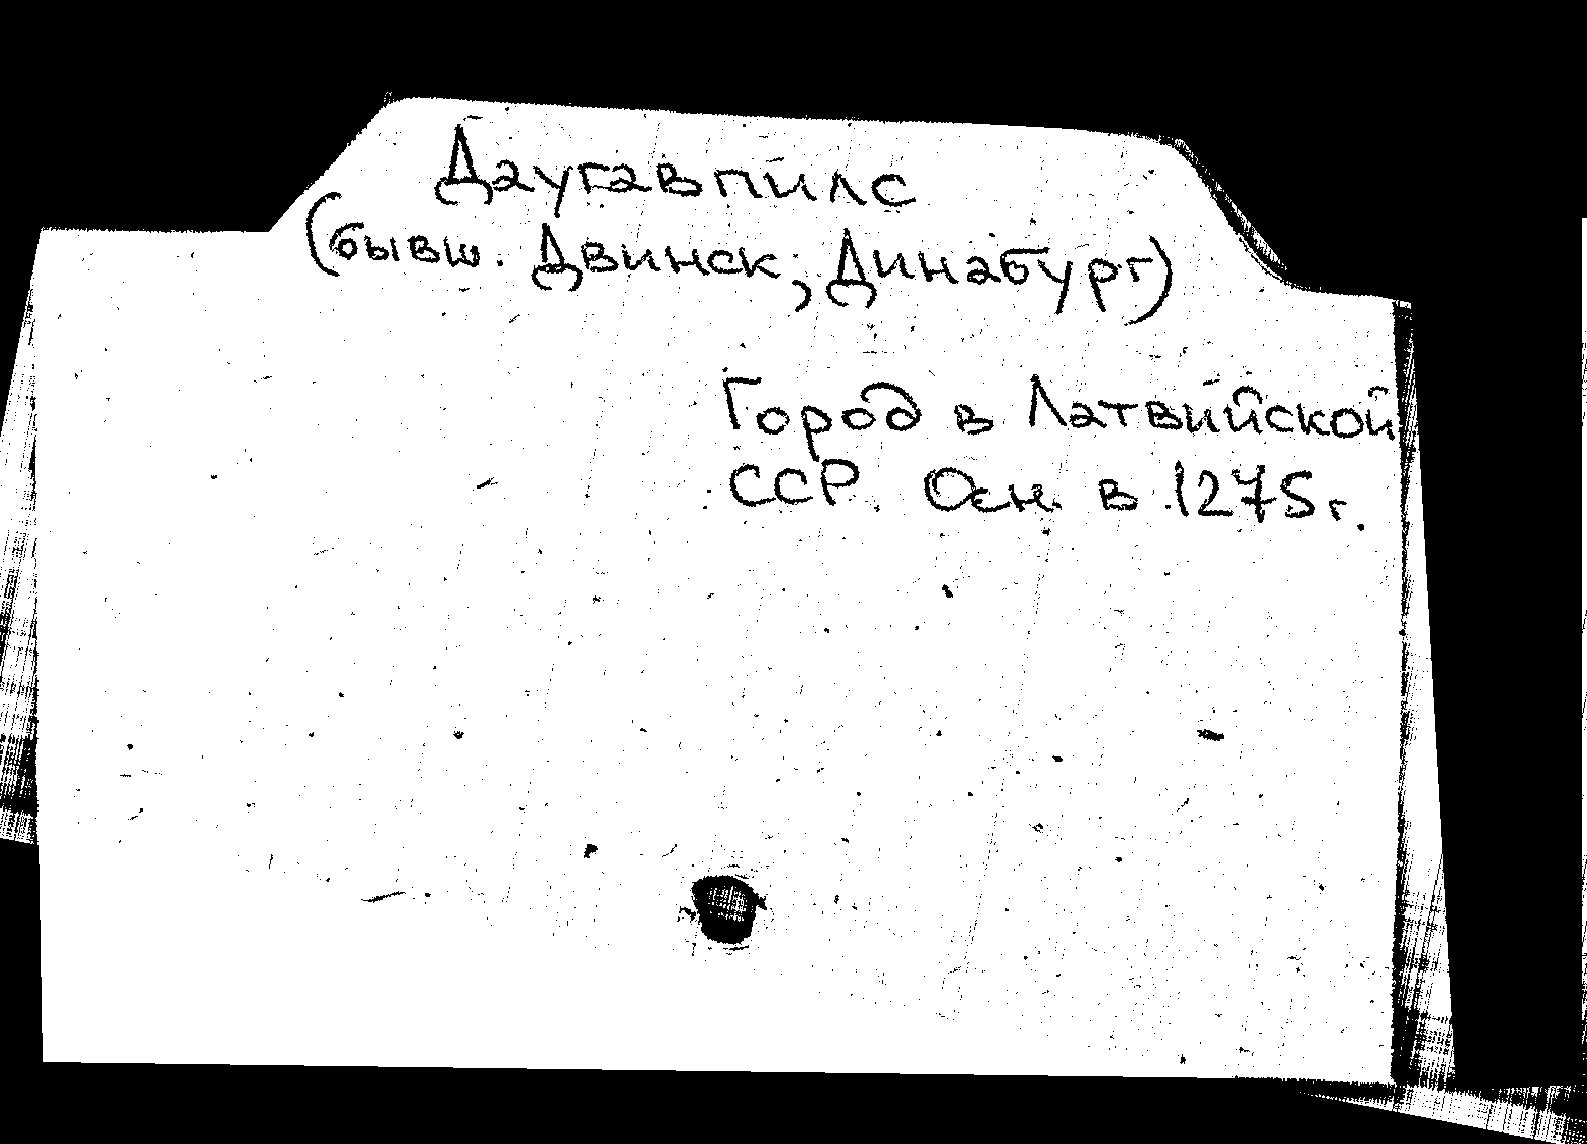 Даугавпилс
(бывш. Двинск, Динабург)
Город в Латвийской
ССР. Осн. в 1275 г.